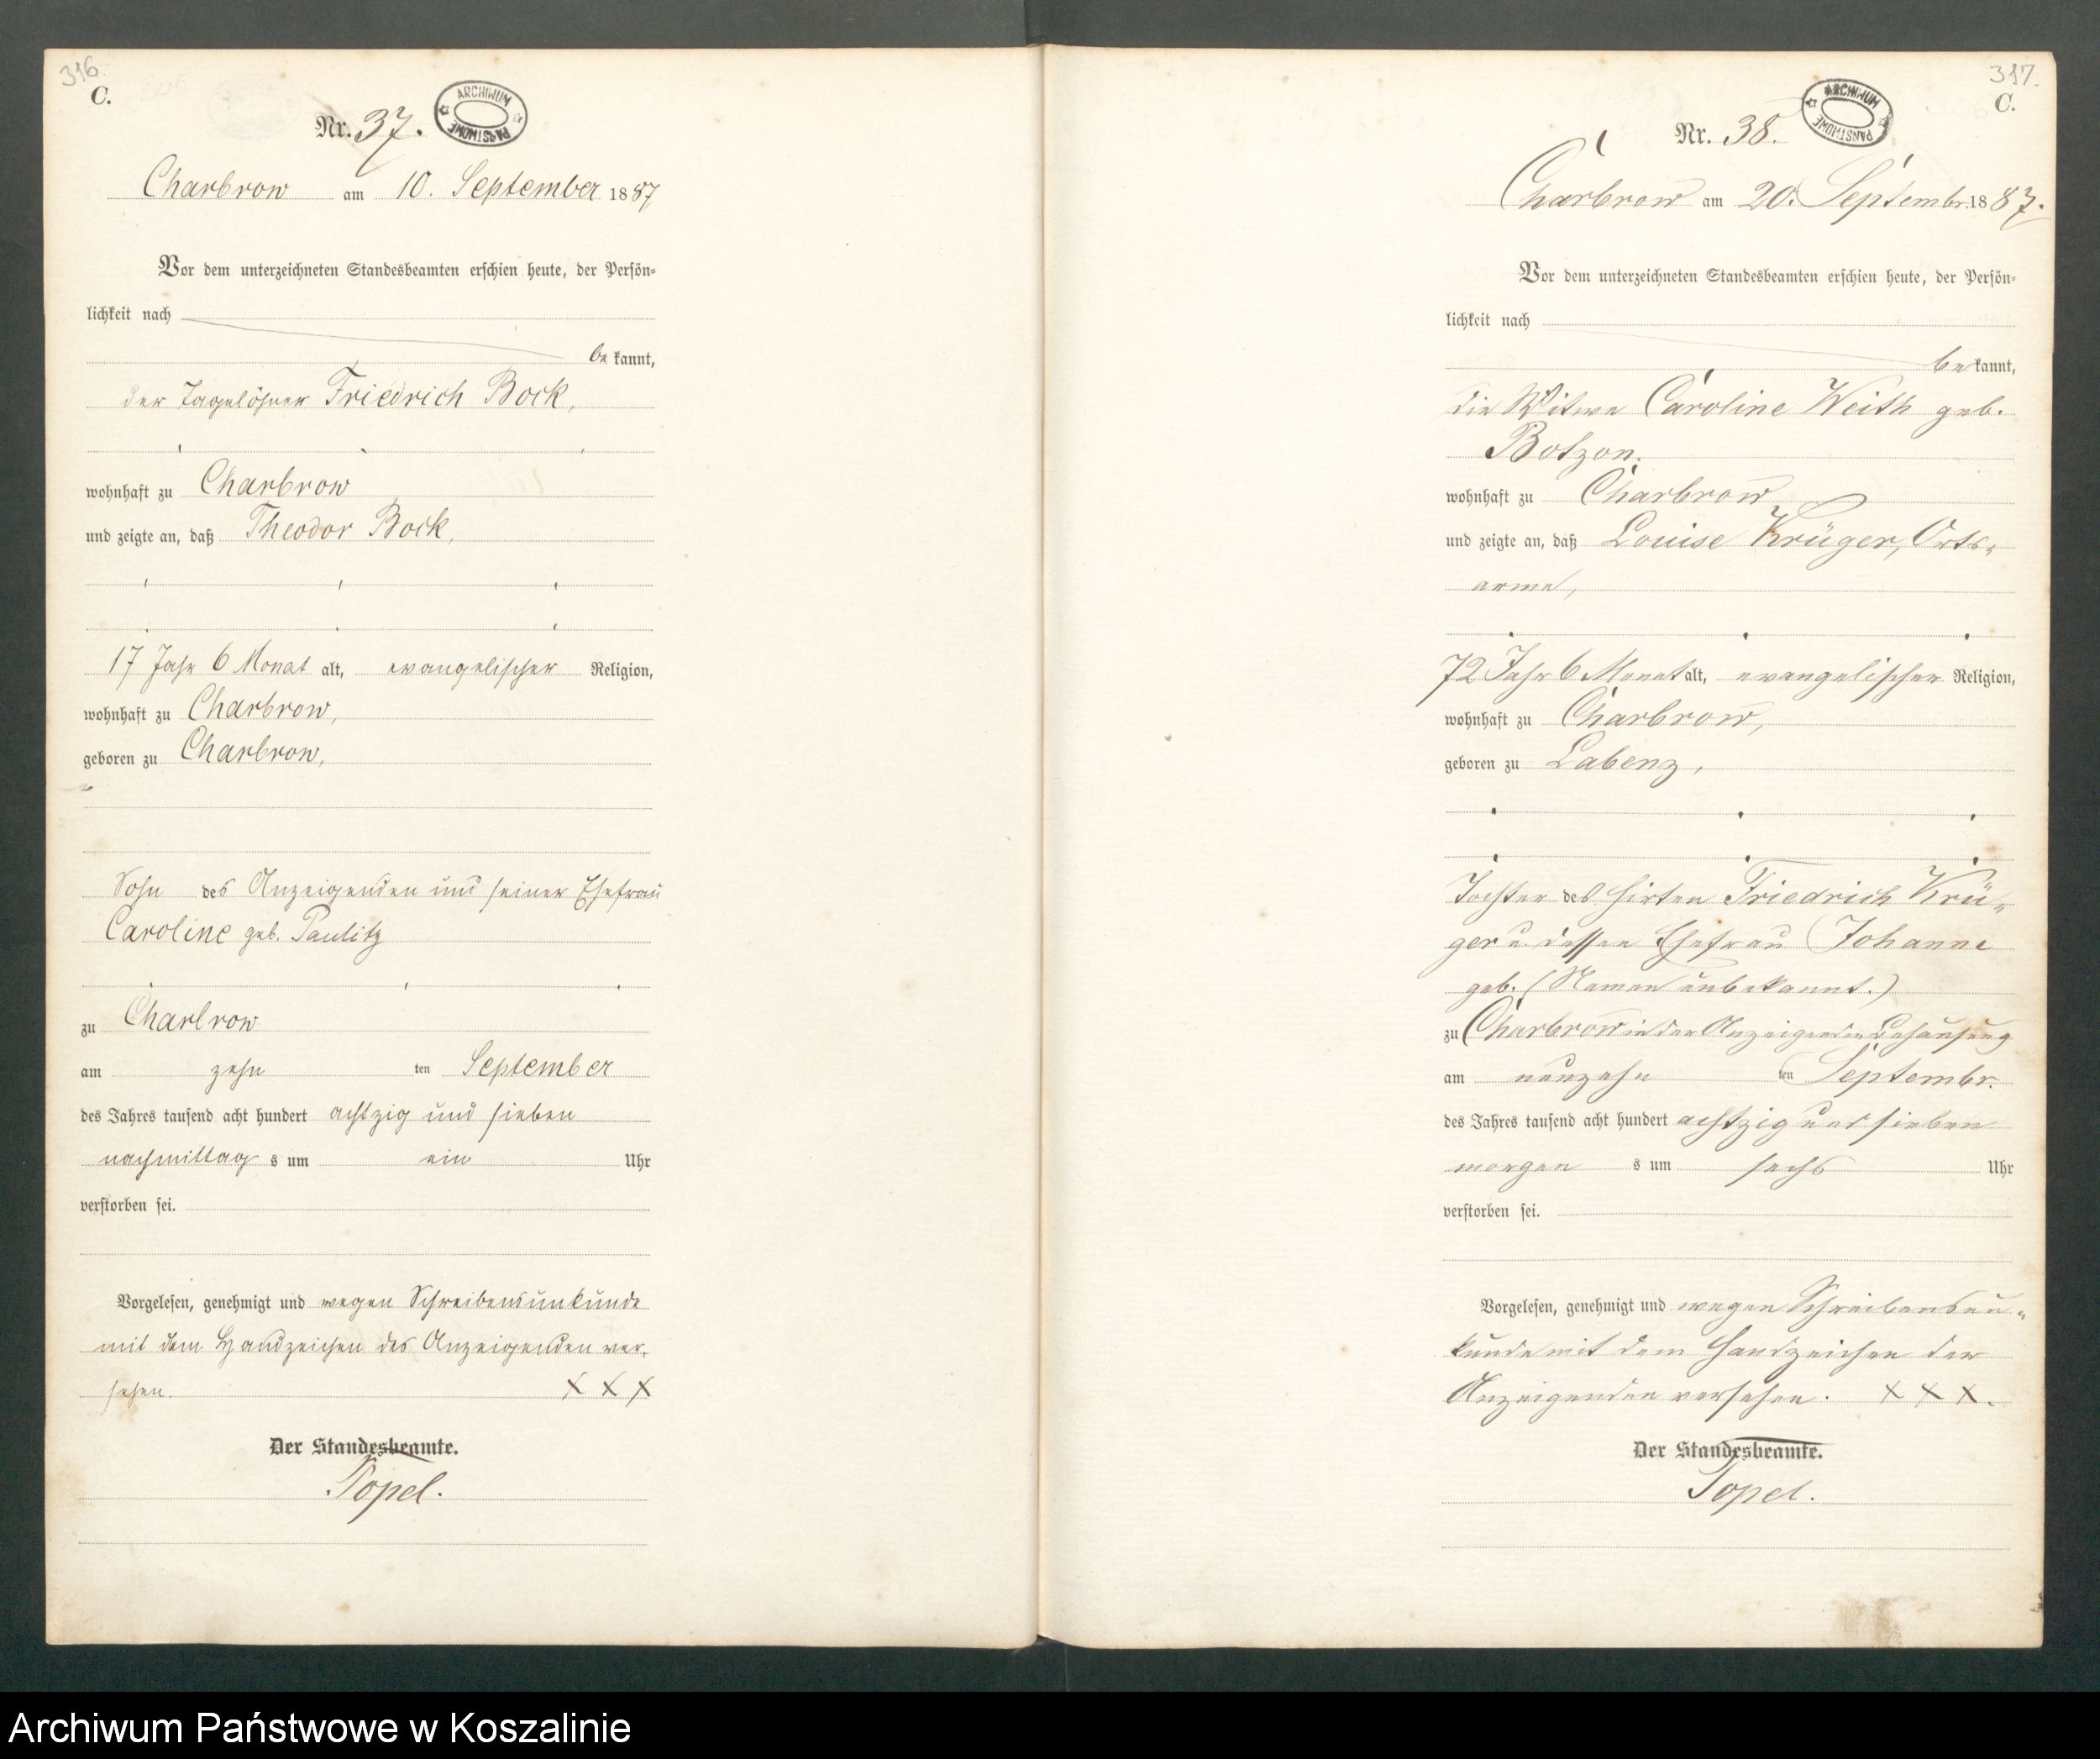 316.
C.
Nr. 37.
ARCHIWUM PAŃSTWOWE
Charbrow am 10. September 1887
Vor dem unterzeichneten Standesbeamten erschien heute, der Persön-
lichkeit nach
be kannt,
der Tagelöhner Friedrich Bock,
wohnhaft zu Charbrow
und zeigte an, daß Theodor Bock,
17 Jahr 6 Monat alt, evangelischer Religion,
wohnhaft zu Charbrow,
geboren zu Charbrow,
Sohn des Anzeigenden und seiner Ehefrau
Caroline geb. Paulitz
zu Charbrow
am zehn ten September
des Jahres tausend acht hundert achtzig und sieben
nachmittag s um ein Uhr
verstorben sei.
Vorgelesen, genehmigt und wegen Schreibensunkunde
mit dem Handzeichen des Anzeigenden ver-
sehen. X X X
Der Standesbeamte.
Topel.
317.
C.
Nr. 38.
ARCHIWUM PAŃSTWOWE
Charbrow am 20. Septembr. 1887.
Vor dem unterzeichneten Standesbeamten erschien heute, der Persön-
lichkeit nach
be kannt,
die Witwe Caroline Weith geb.
Botzon.
wohnhaft zu Charbrow
und zeigte an, daß Louise Krüger, Orts-
arme,
72 Jahr 6 Monat alt, evangelischer Religion,
wohnhaft zu Charbrow,
geboren zu Labenz,
Tochter des Hirten Friedrich Krü-
ger u. dessen Ehefrau Johanne
geb. (Namen unbekannt.)
zu Charbrow in der Anzeigenden Behausung
am neunzehn ten Septembr.
des Jahres tausend acht hundert achtzig und sieben
morgen s um sechs Uhr
verstorben sei.
Vorgelesen, genehmigt und wegen Schreibensun-
kunde mit dem Handzeichen der
Anzeigenden versehen. X X X.
Der Standesbeamte.
Topel.
Archiwum Państwowe w Koszalinie